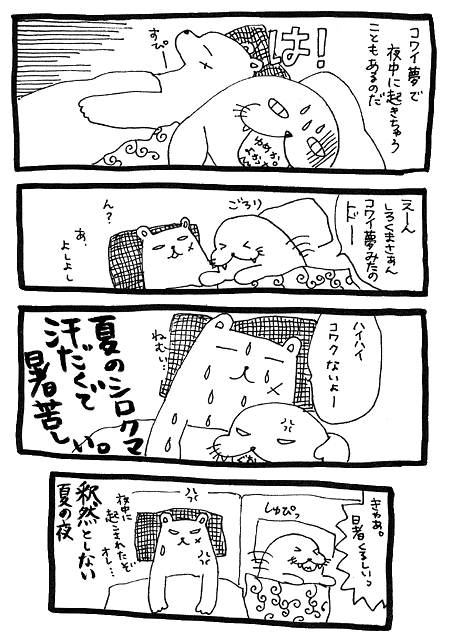 コワイ夢で
夜中に起きちゃう
こともあるのだ
は!
すぴー
ゆめか
えーん
しろくまさぁん
コワイ夢みたの
ドドー
ごろり
ん?
あ、
よしよし
ハイハイ
コワクないよー
ねむい…
夏のシロクマ
汗だくで
暑苦しい。
きゃあ。
暑くるしいっ
しゅぴっ
夜中に
起こされたぞ
オレ…
釈然としない
夏の夜